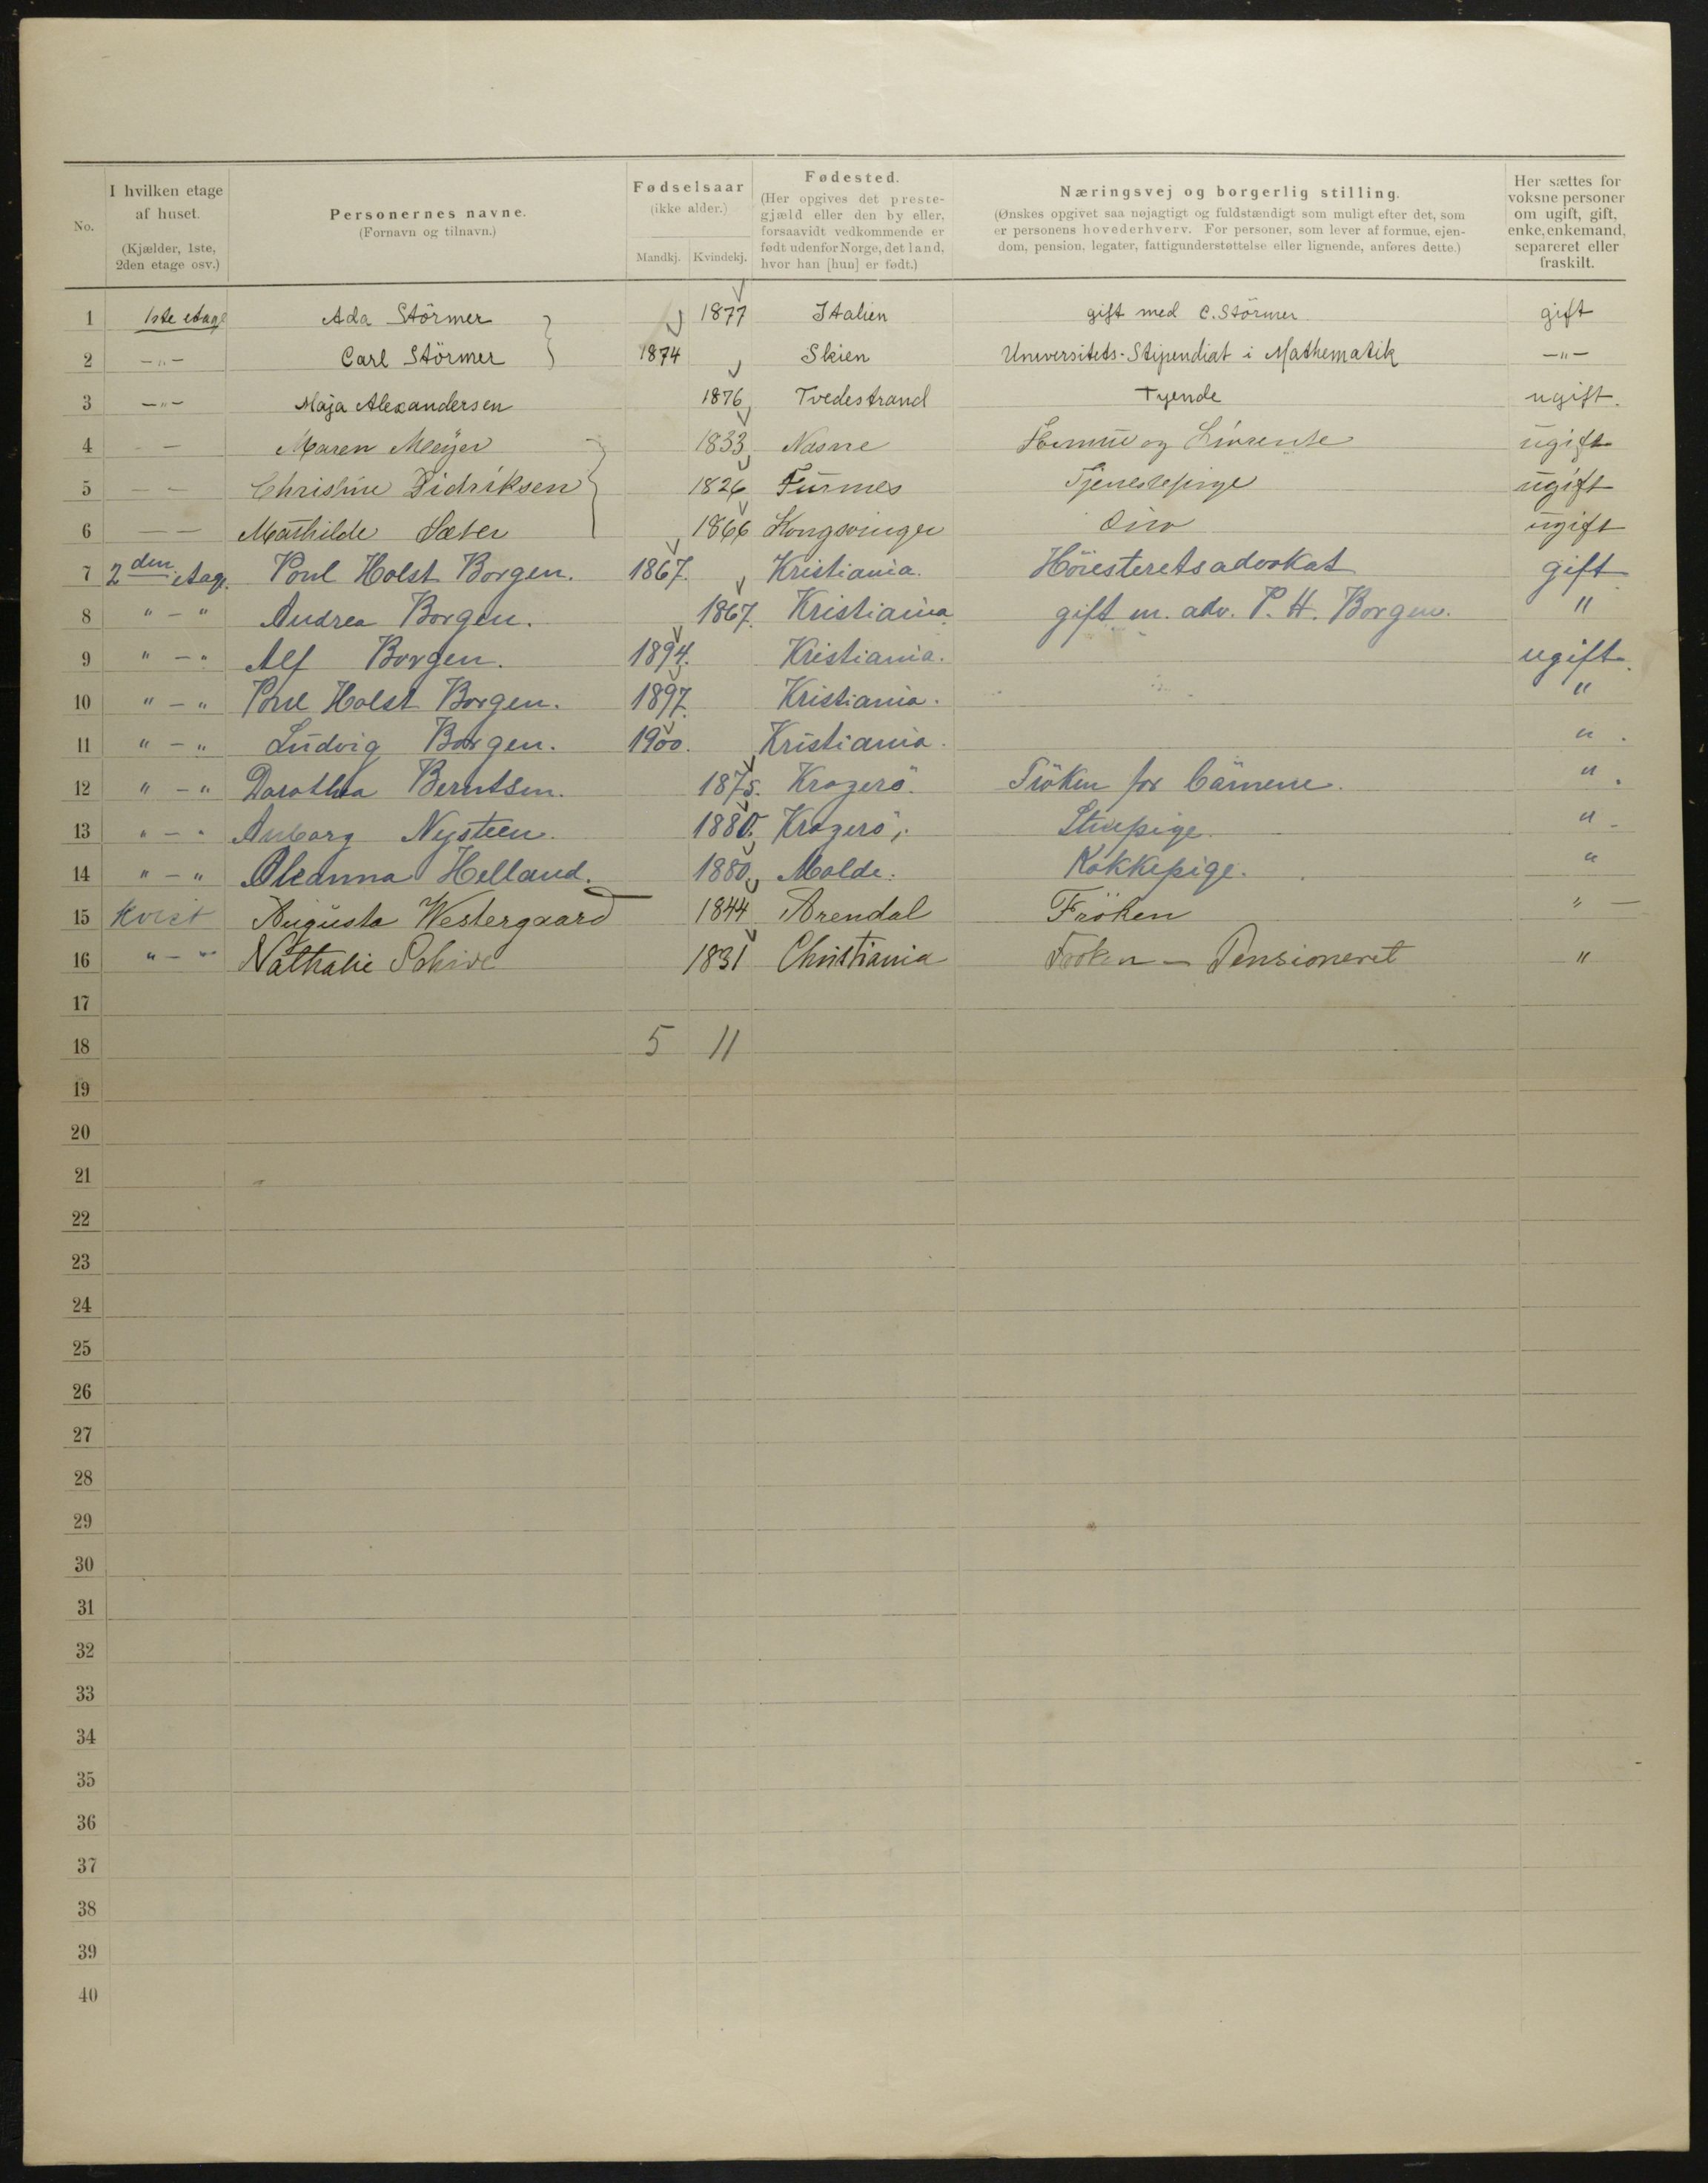 No.
I hvilken etage af huset. (Kjælder, 1ste, 2den etage osv.)
Personernes navne. (Fornavn og tilnavn.)
Fødselsaar (ikke alder.) Mandkj. Kvindekj.
Fødested. (Her opgives det prestegjæld eller den by eller, forsaavidt vedkommende er født udenfor Norge, det land, hvor han [hun] er født.)
Næringsvej og borgerlig stilling. (Ønskes opgivet saa nøjagtigt og fuldstændigt som muligt efter det, som er personens hovederhverv. For personer, som lever af formue, ejendom, pension, legater, fattigunderstøttelse eller lignende, anføres dette.)
Her sættes for voksne personer om ugift, gift, enke, enkemand, separeret eller fraskilt.
1 1ste etage Ada Störmer 1877 Italien gift med C. Störmer gift
2 —"— Carl Störmer 1874 Skien Universitets-Stipendiat i Mathematik —"—
3 —"— Maja Alexandersen 1876 Tvedestrand Tyende ugift.
4 — — Maren Meyer 1833 og Livrente ugift
5 — — Christine Didriksen 1826 Furnes Tjenestepige ugift
6 — — Mathilde Sæter 1866 Kongsvinger ugift
7 2den etage. Poul Holst Borgen. 1867. Kristiania. Höiesteretsadvokat gift
8 " - " Andrea Borgen. 1867. Kristiania. gift m. adv. P. H. Borgen. "
9 " - " Alf Borgen. 1894. Kristiania. ugift.
10 " - " Poul Holst Borgen. 1897. Kristiania. "
11 " - " Ludvig Borgen. 1900. Kristiania. " .
12 " - " Dorothea Berntsen. 1875. Kragerö. Fröken for börnene. " .
13 " - " Nysteen. 1880. Kragerö. Stuepige. " -
14 " - " Oleanna Helland. 1880. Molde. Kokkepige. "
15 Kvist Augusta Westergaard 1844 Arendal Fröken " —
16 " - " Nathalie Schive 1831 Christiania Froken — Pensioneret "
17
18 5 11
19
20
21
22
23
24
25
26
27
28
29
30
31
32
33
34
35
36
37
38
39
40